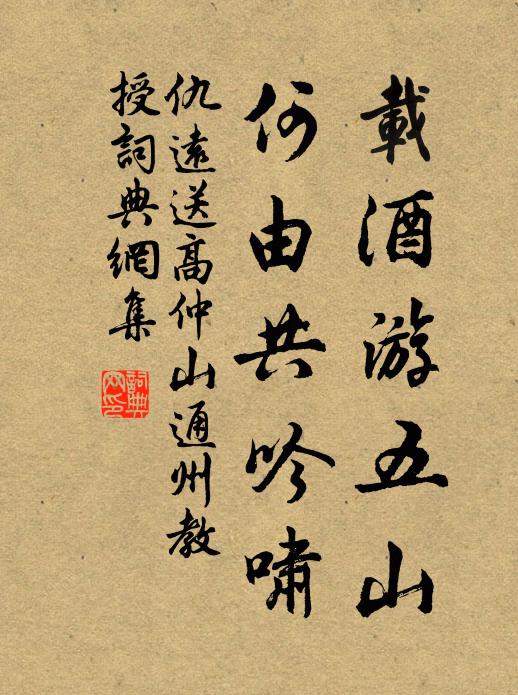 載酒游五山
何由共吟嘯
仇遠送高仲山通州教
授詞典網集
詞典
网印